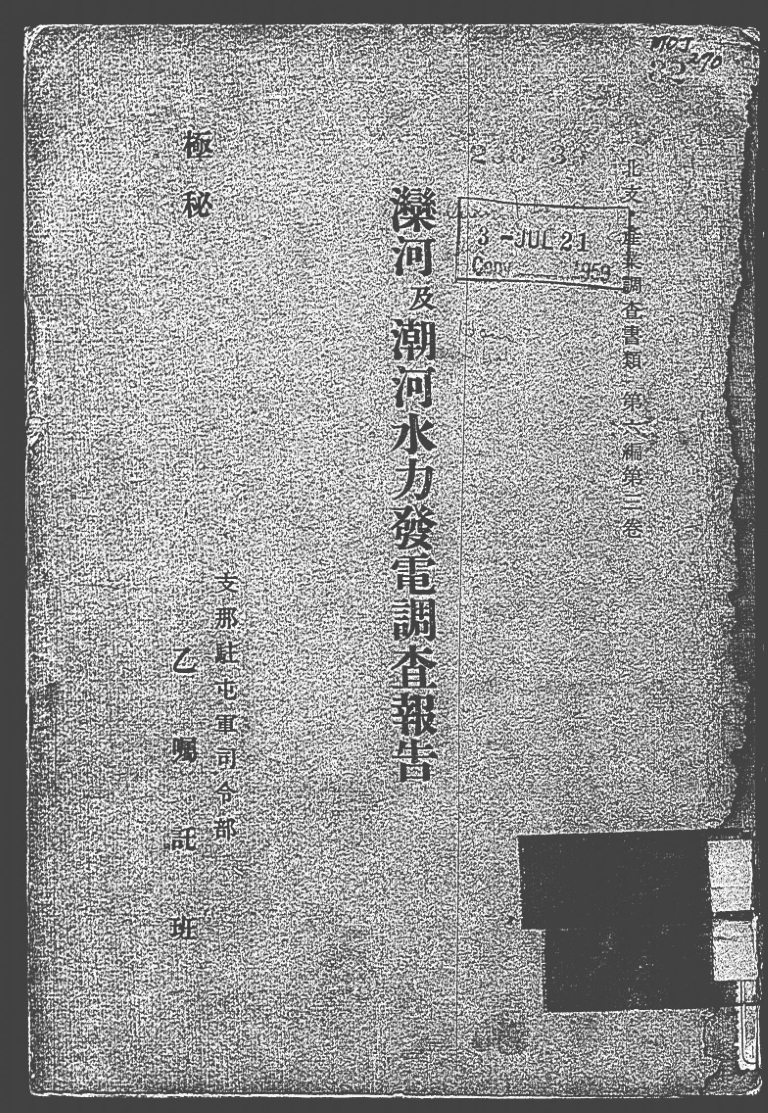 北支産業調査書類 第六編第三卷
灤河及潮河水力發電調査報告
極秘
支那駐屯軍司令部
乙嘱託班
3-JUL 21
Copy 1959